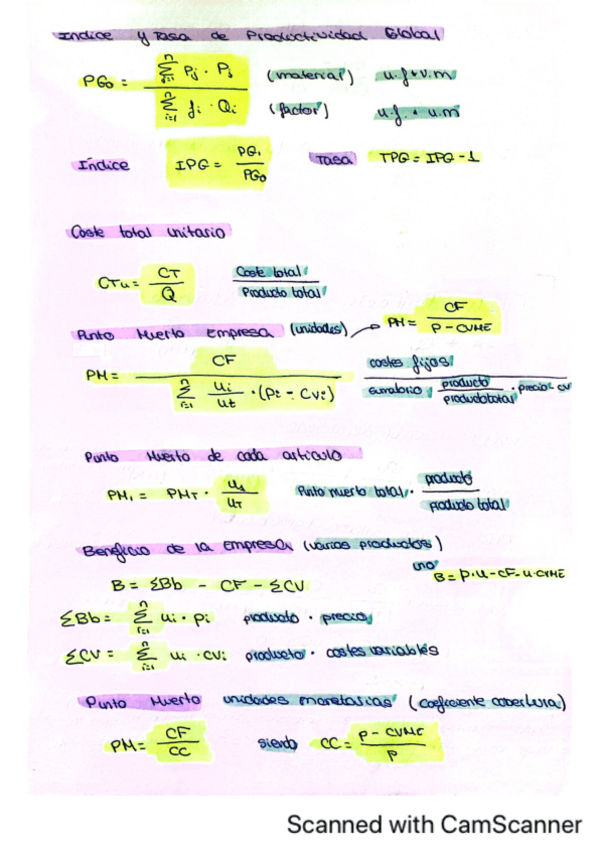 Indice y Tasa de Productividad Global
PG₀ = (∑ⁿⱼ₌₁ Pⱼ · Pⱼ) / (∑ⁿᵢ₌₁ fᵢ · Qᵢ)
(material) u.f + v.m
(factor) u.f. + u.m
Índice IPG = PG₁ / PG₀ Tasa TPG = IPG - 1
Coste total unitario
CTu = CT / Q Coste total / Producto total
Punto Muerto Empresa (unidades) → PM = CF / (P - CVME)
PM = CF / (∑ⁿᵢ₌₁ ui/ut · (Pi - CVi)) costes fijos / (sumatorio producto/producto total · precio - cv)
Punto Muerto de cada artículo
PM₁ = PMT · u₁ / uT Punto muerto total · producto / producto total
Beneficio de la empresa (varios productos)
B = ∑Bb - CF - ∑CV uno B = P·u - CF - u·CVME
∑Bb = ∑ⁿᵢ₌₁ ui · pi producto · precio
∑CV = ∑ⁿᵢ₌₁ ui · cvi producto · costes variables
Punto Muerto unidades monetarias (coeficiente cobertura)
PM = CF / CC siendo CC = (P - CVME) / P
Scanned with CamScanner